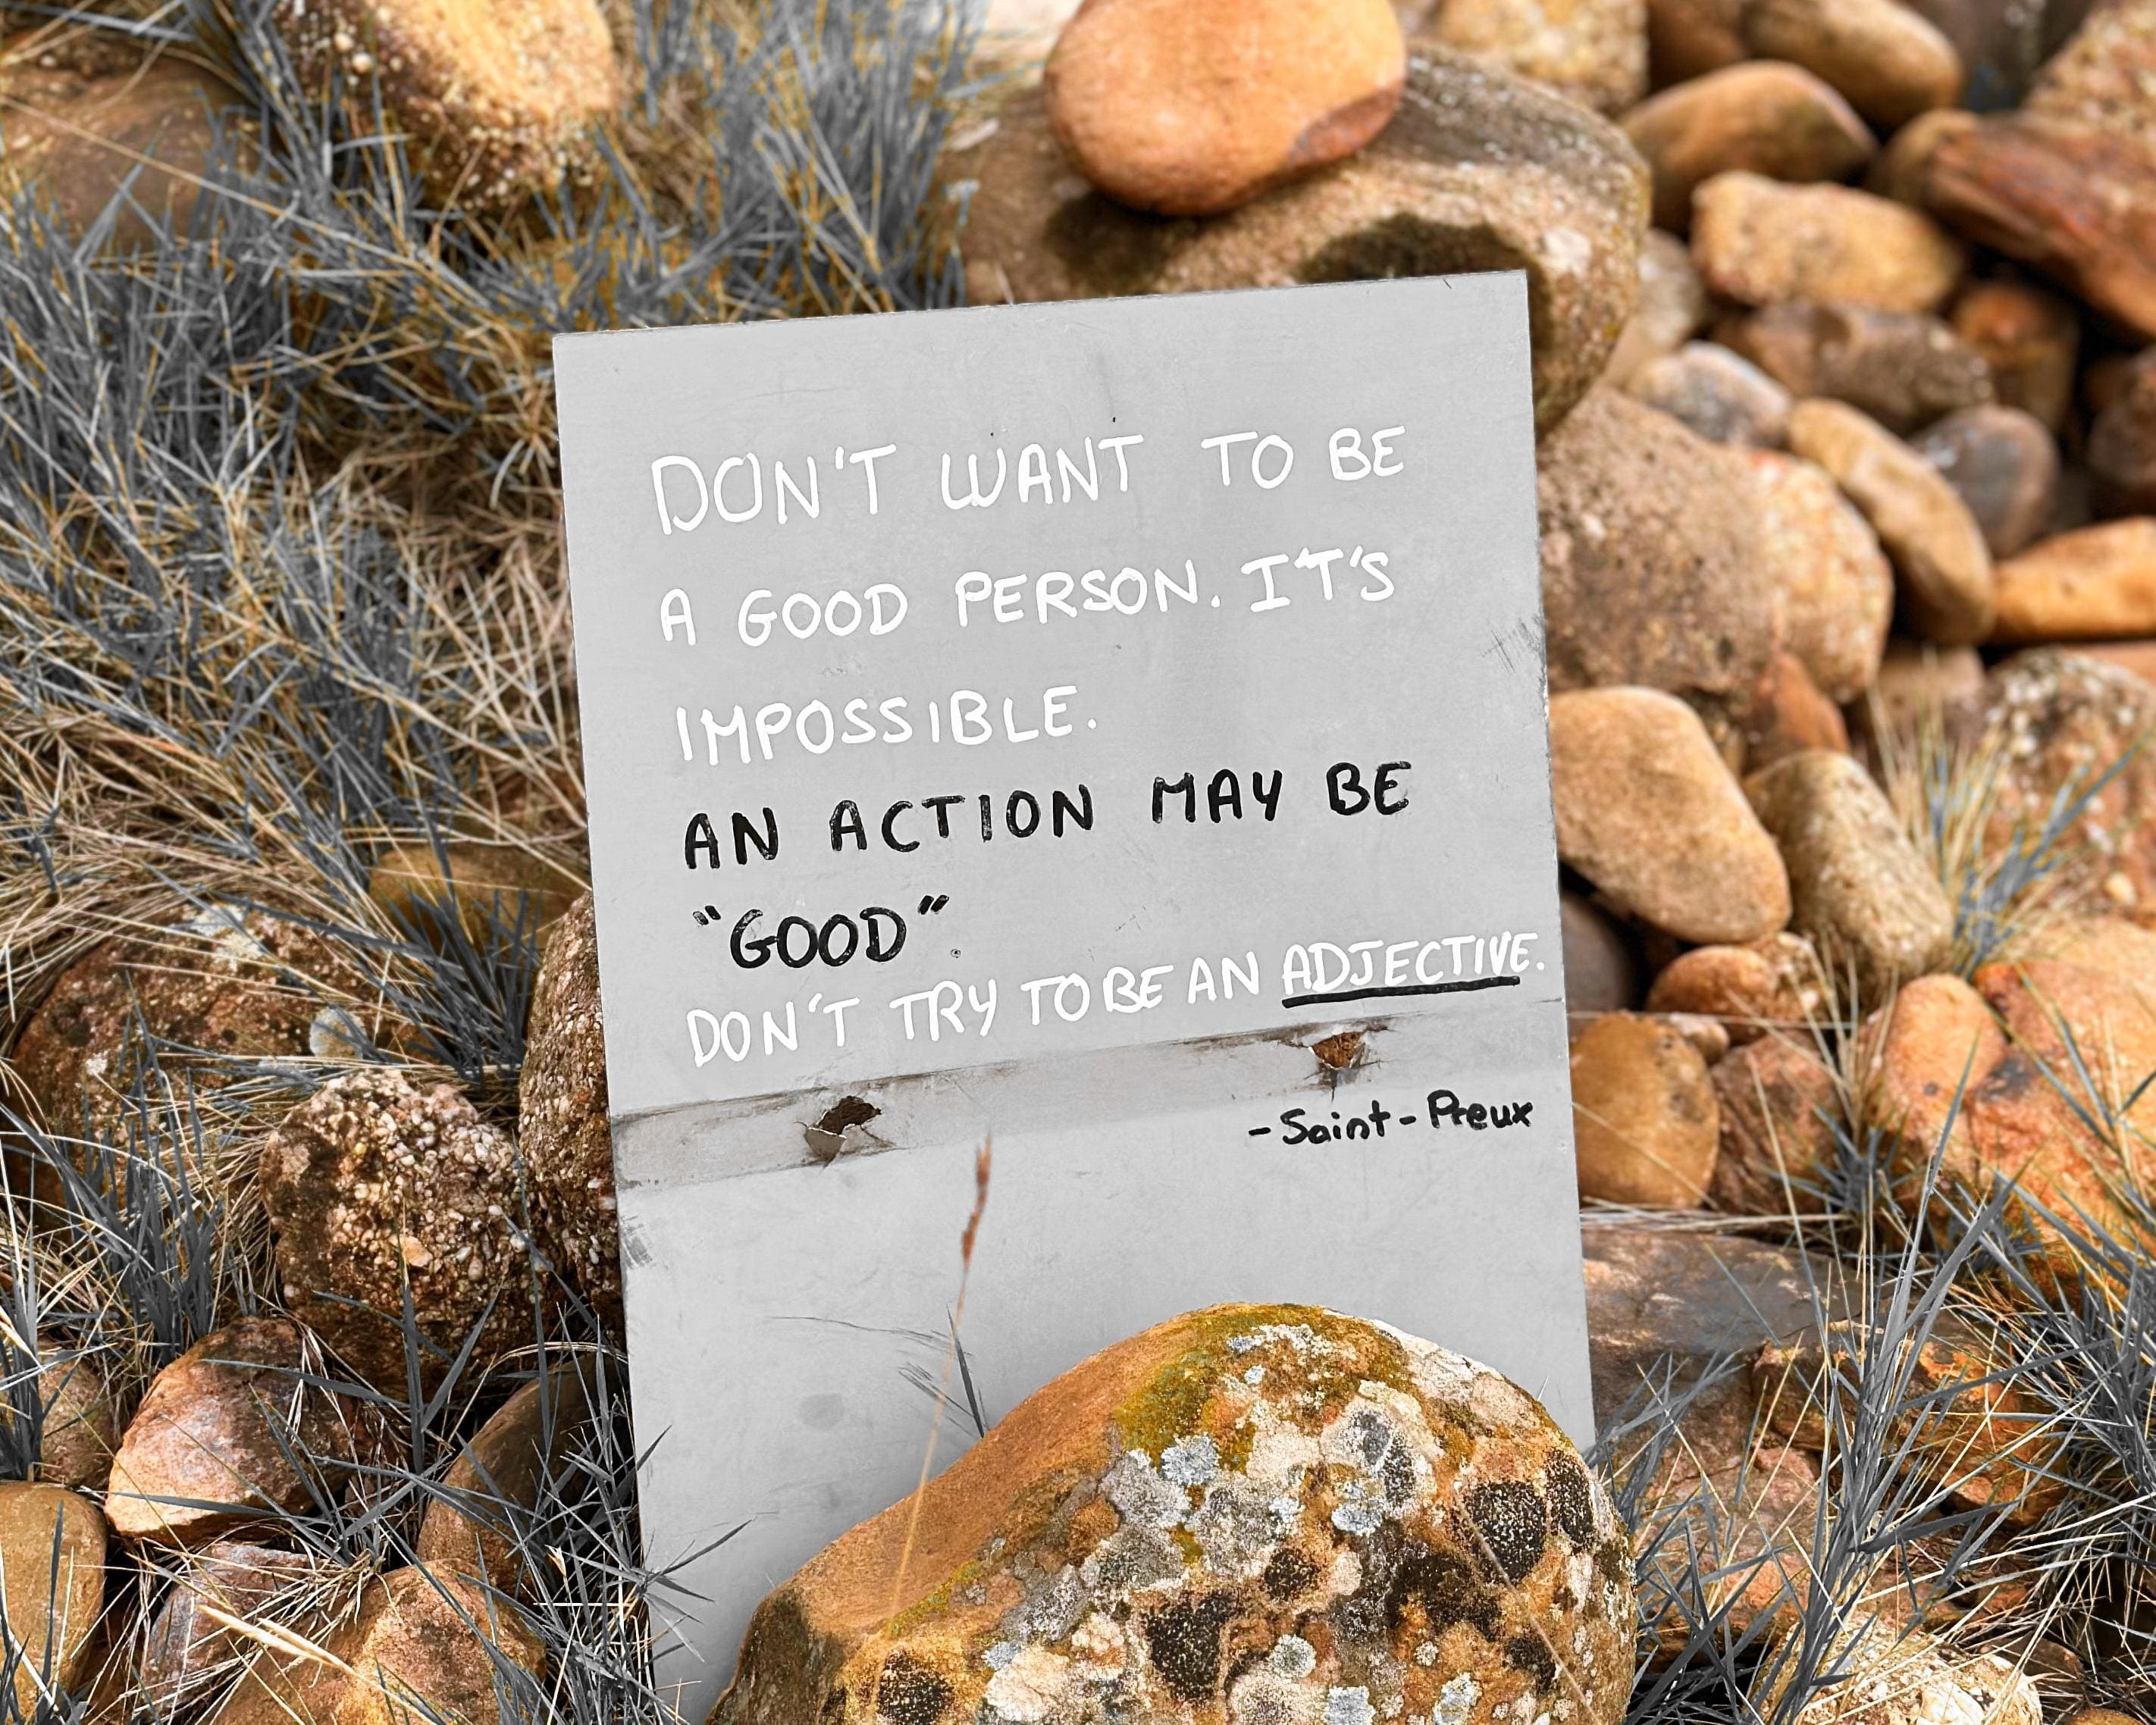 DON'T WANT TO BE
A GOOD PERSON. IT'S
IMPOSSIBLE.
AN ACTION MAY BE
"GOOD".
DON'T TRY TO BE AN ADJECTIVE.
-Saint-Preux